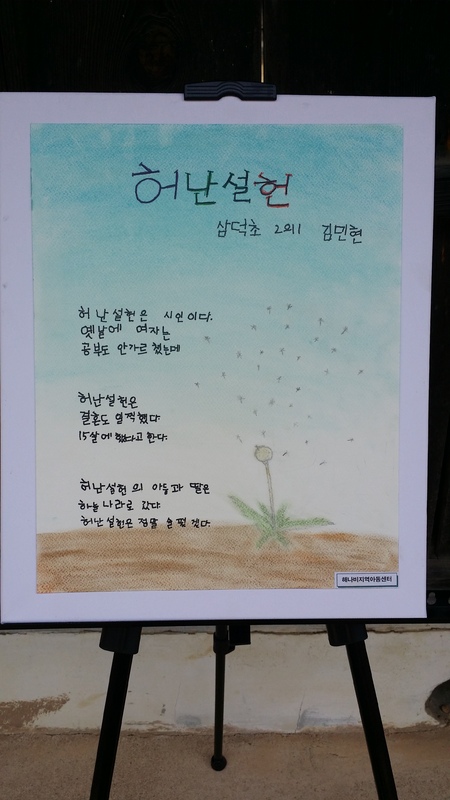 허난설헌
삼덕초 2의1 김민현
허난설헌은 시인이다.
옛날에 여자는
공부도 안가르쳤는데
허난설헌은
결혼도 일찍했다.
15살에 했다고 한다.
허난설헌의 아들과 딸은
하늘나라로 갔다
허난설헌은 정말 슬펐겟다.
해나비지역아동센터